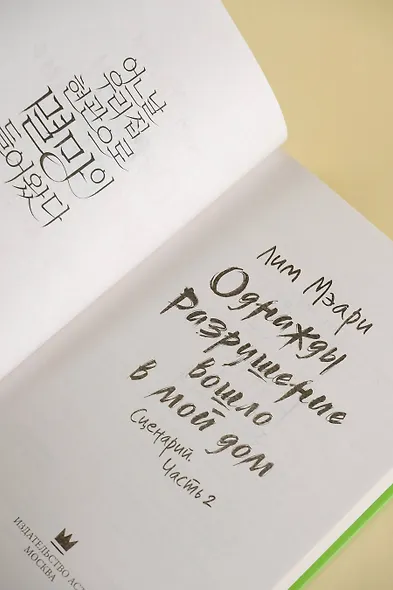 어느 날
우리 집
현관으로
멸망이
들어왔다
Лим Мэари
Однажды
разрушение
вошло
в мой дом
Сценарий.
Часть 2
ИЗДАТЕЛЬСТВО АСТ
МОСКВА